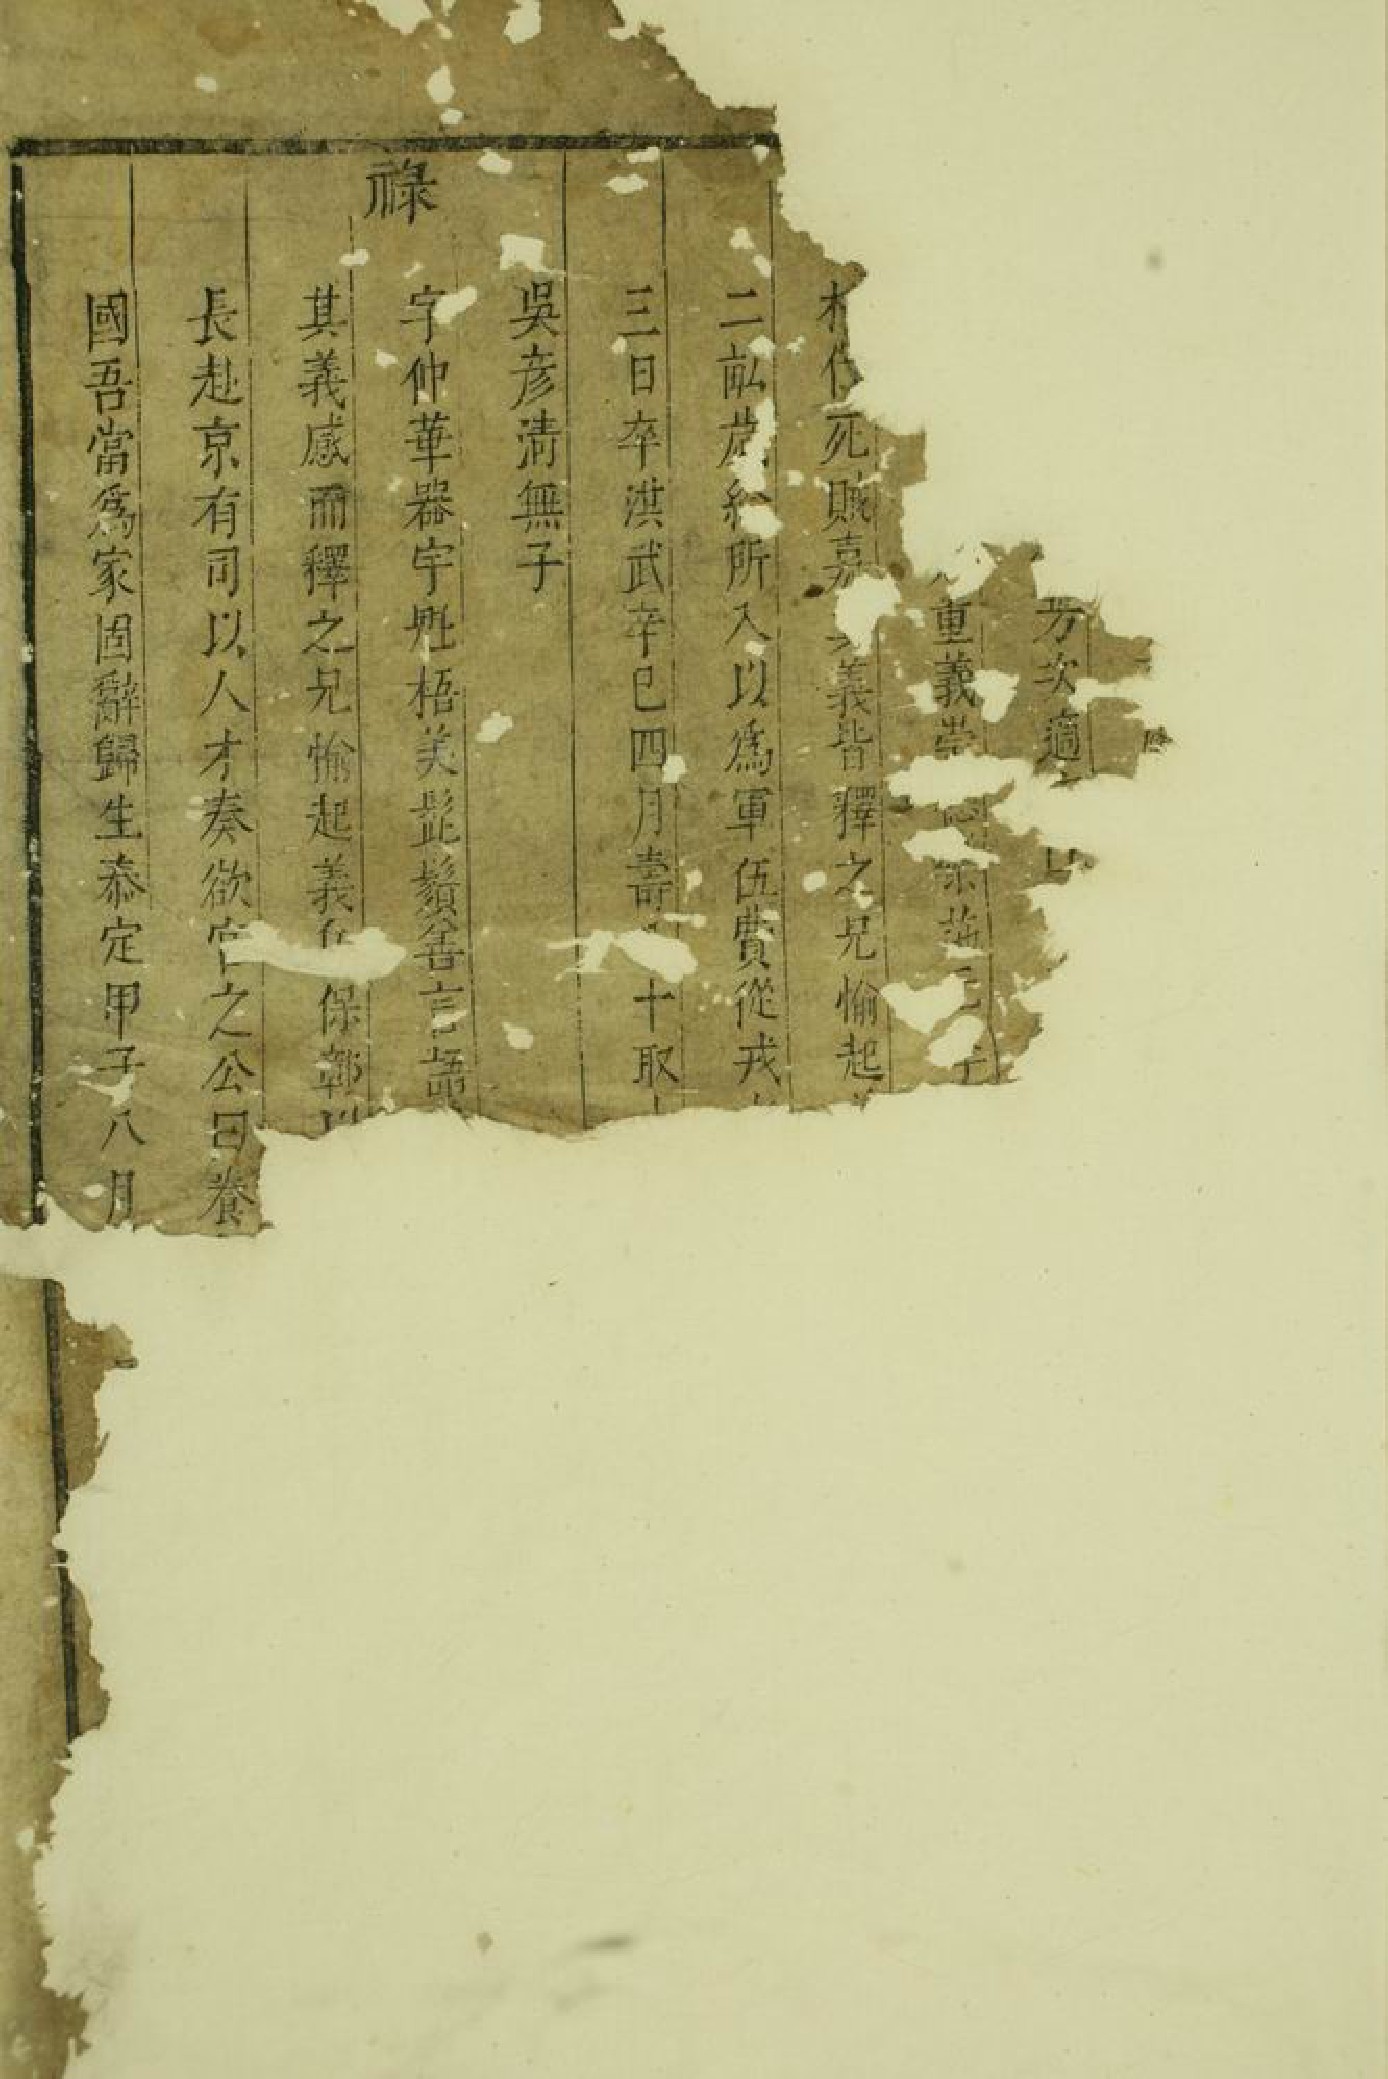 芳次適
重義崇
死賊嘉義皆釋之兄愉起
二畝歲所入以爲軍伍費從戎
三日卒洪武辛巳四月壽十取
吳彦清無子
祿
字仲華器宇魁梧美髭鬚善言語
其義感而釋之兄愉起義保鄣以
長赴京有司以人才奏欲官之公曰養
國吾當爲家固辭歸生泰定甲子八月